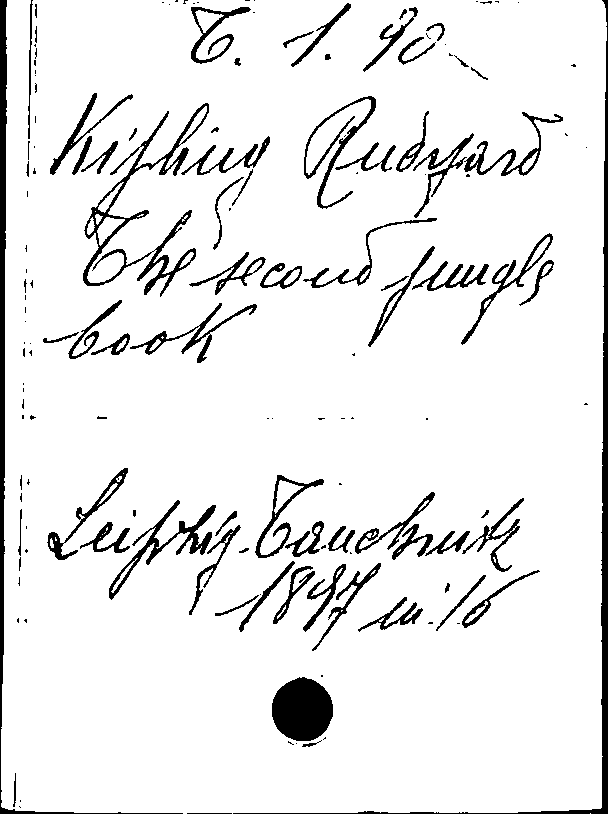 T. 1. 90
Kipling Rudyard
The second jungle
book
Leipzig. Tauchnitz
1897 in 16